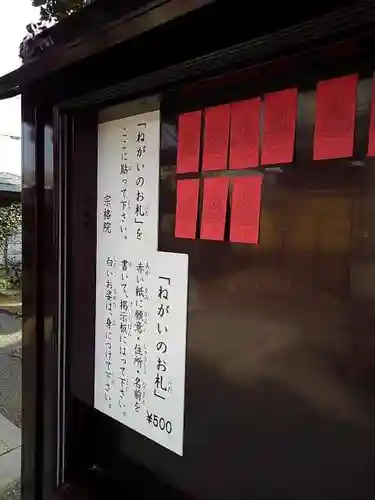 「ねがいのお札」を
ここに貼って下さい。
宗格院
「ねがいのお札」
赤い紙に願意・住所・名前を
書いて、掲示板にはって下さい。
白いお姿は、身につけて下さい。
¥500